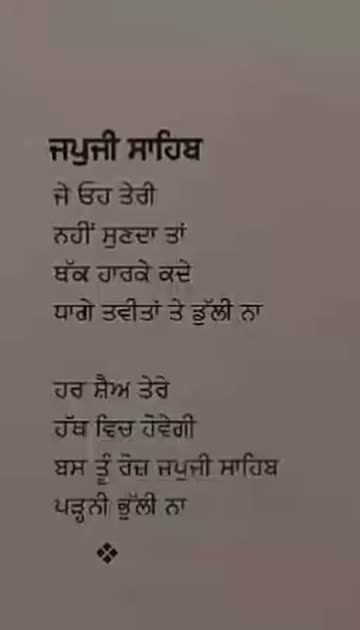 ਜਪੁਜੀ ਸਾਹਿਬ
ਜੇ ਓਹ ਤੇਰੀ
ਨਹੀਂ ਸੁਣਦਾ ਤਾਂ
ਥੱਕ ਹਾਰਕੇ ਕਦੇ
ਧਾਗੇ ਤਵੀਤਾਂ ਤੇ ਡੁੱਲੀ ਨਾ
ਹਰ ਸ਼ੈਅ ਤੇਰੇ
ਹੱਥ ਵਿਚ ਹੋਵੇਗੀ
ਬਸ ਤੂੰ ਰੋਜ਼ ਜਪੁਜੀ ਸਾਹਿਬ
ਪੜ੍ਹਨੀ ਭੁੱਲੀ ਨਾ